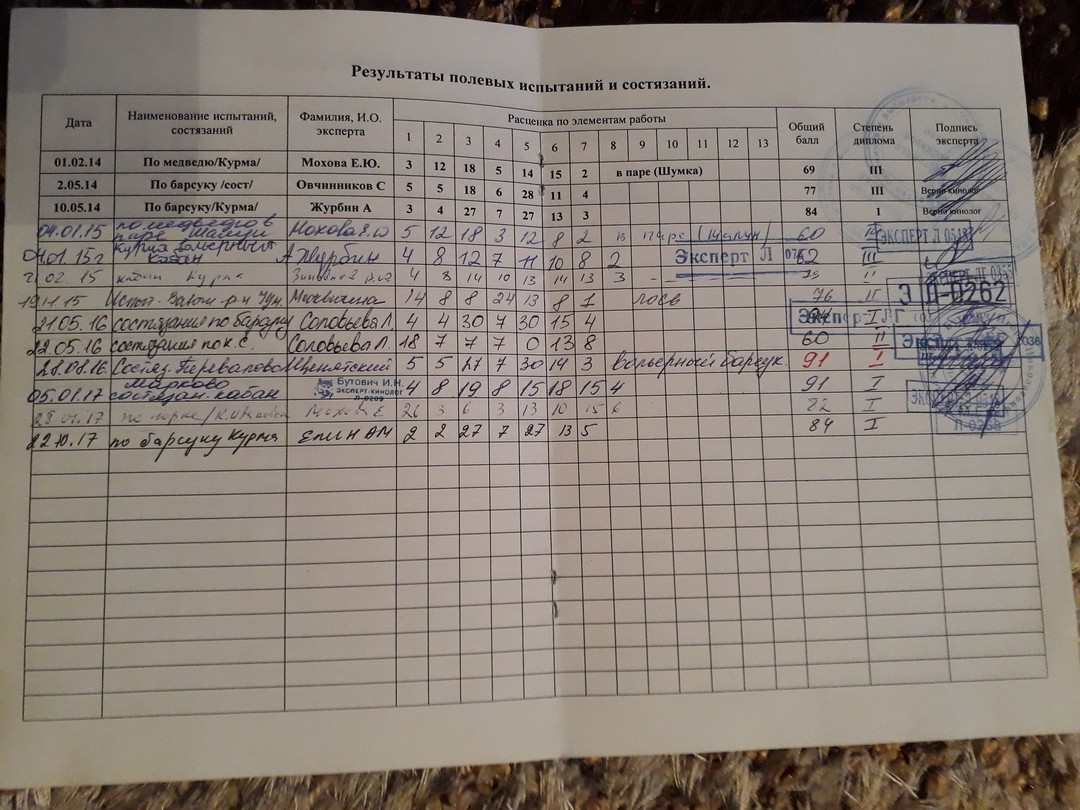 Результаты полевых испытаний и состязаний.
Дата Наименование испытаний, состязаний Фамилия, И.О. эксперта Расценка по элементам работы Общий балл Степень диплома Подпись эксперта
1 2 3 4 5 6 7 8 9 10 11 12 13
01.02.14 По медведю/Курма/ Мохова Е.Ю. 3 12 18 5 14 15 2 в паре (Шумка) 69 III
2.05.14 По барсуку /сост/ Овчинников С 5 5 18 6 28 11 4 77 III Верно кинолог
10.05.14 По барсуку/Курма/ Журбин А 3 4 27 7 27 13 3 84 I Верно кинолог
04.01.15 по медведю в паре Мохова Е.Ю 5 12 18 3 12 8 2 в паре 60 III
ЭКСПЕРТ Л
04.01.15г курма вольерный кабан А Журбин 4 8 12 7 11 10 8 2 62 III
Эксперт Л
02.15 кабан Курма 4 8 14 10 13 14 13 3 75 II
19.11.15 Москвина 14 8 8 24 13 8 1 лось 76 II
Э Л-0262
21.05.16 состязания по барсуку Соловьева Л. 4 4 30 7 30 15 4 94 I
Эксперт
22.05.16 состязания по к.с. Соловьева Л. 18 7 7 7 0 13 8 60 II
28.08.16 Состяз. Перевалово Щенятский 5 5 27 7 30 14 3 вольерный барсук. 91 I
05.01.17 Марково состязан. кабан Бутович И.Н. ЭКСПЕРТ-КИНОЛОГ Л-0209 4 8 19 8 15 18 15 4 91 I
28.01.17 по норке Мохова Е 26 3 6 3 13 10 15 6 82 I
22.10.17 по барсуку Курма Епин АМ 2 2 27 7 27 13 5 84 I
Л-0268